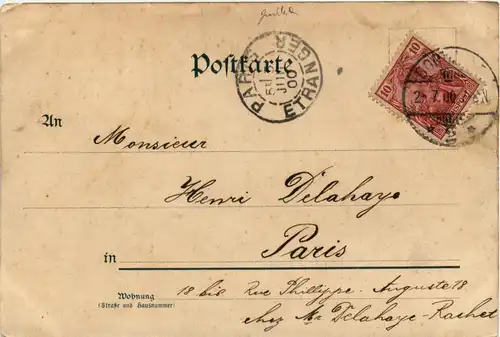 Postkarte
PARIS ETRANGER
JUIL
00
10 10
An
Monsieur
Henri Delahaye
in Paris
Wohnung
(Straße und Hausnummer)
18 bis Rue Phillippe-Auguste 18
chez Mr Delahaye-Rachet